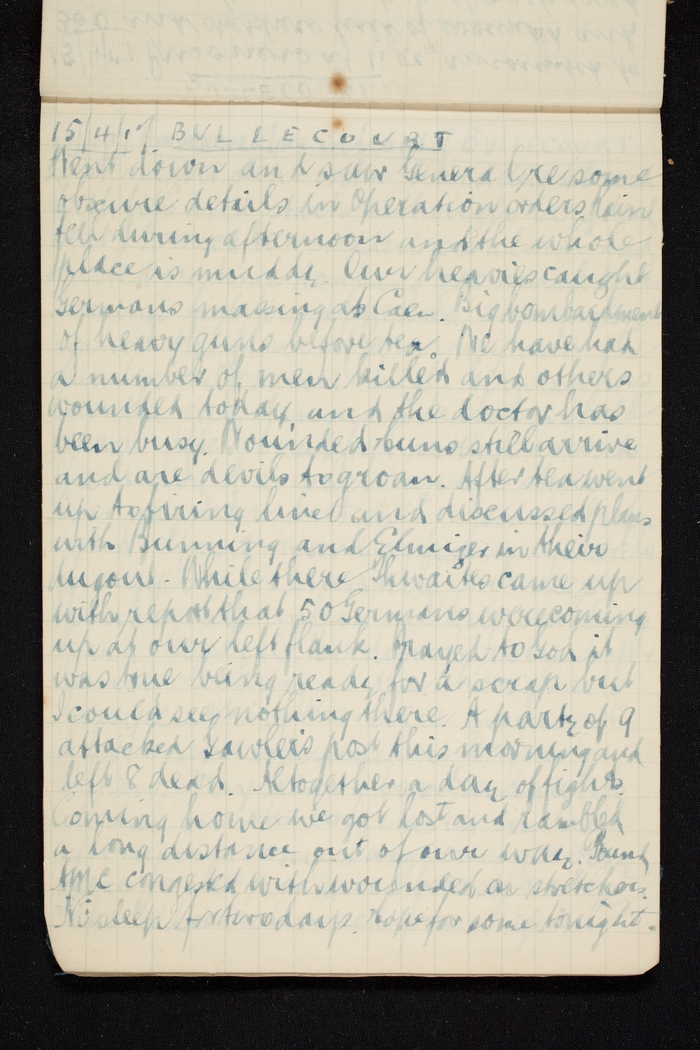 15/4/17 BULLECOURT
Went down and saw General re some
obscure details in Operation orders, rain
fell during afternoon and the whole
place is muddy. Our heavies caught
Germans massing at Caen. Big bombardment
of heavy guns before tea. We have had
a number of men killed and others
wounded today and the doctor has
been busy. Wounded huns still arrive
and are devils to groan. After tea went
up to firing line and discussed plans
with Bunning and Elmiger in their
dugout. While there Thwaites came up
with report that 50 Germans were coming
up at our left flank. Prayed to God it
was true being ready for a scrap but
I could see nothing there. A party of 9
attacked Lawler's post this morning and
left 8 dead. Altogether a day of fights.
Coming home we got lost and rambled
a long distance out of our way. Found
AMC congested with wounded on stretchers.
No sleep for two days. hope for some tonight.